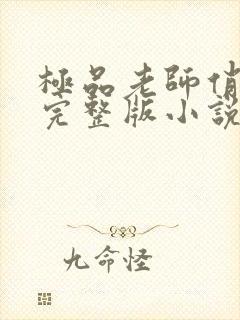 極品老師俏
完整版小說
九命怪